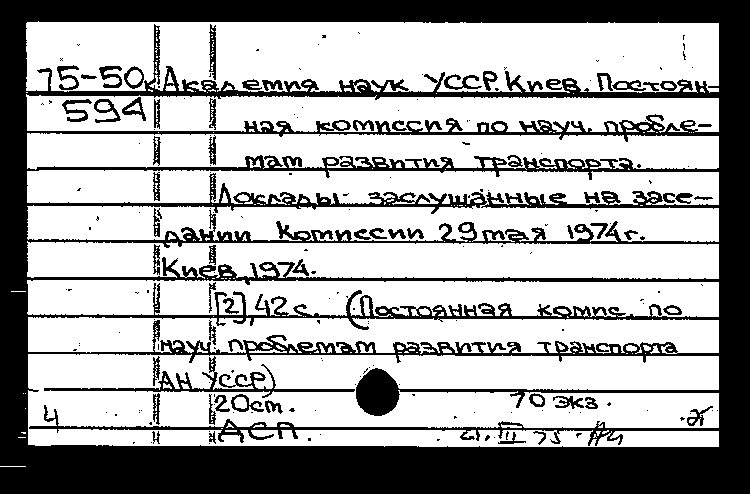 75-50к Академия наук УССР. Киев. Постоян-
594 ная комиссия по науч. пробле-
мам развития транспорта.
Доклады заслушанные на засе-
дании Комиссии 29 мая 1974 г.
Киев, 1974.
[2], 42 с. (Постоянная комис. по
науч. проблемам развития транспорта
АН УССР)
20 ст. 70 экз.
4 АСП. 21. III 75